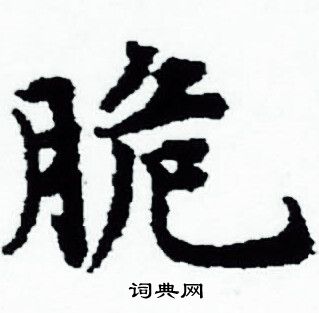 脆
词典网